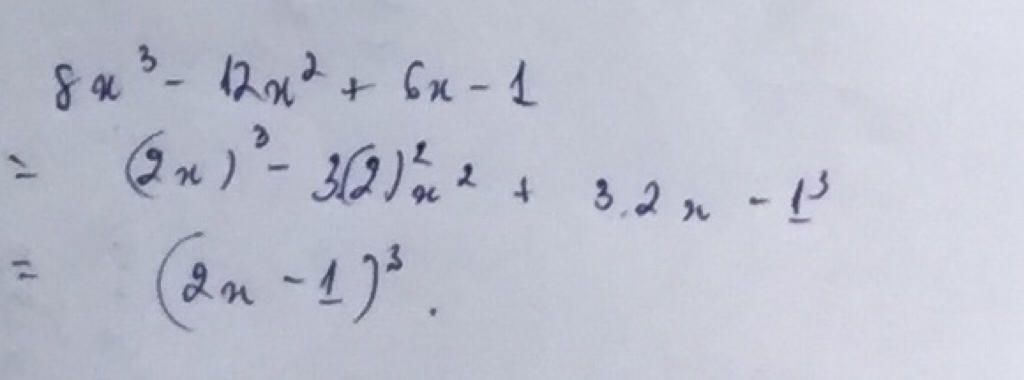 8x³ - 12x² + 6x - 1
= (2x)³ - 3(2)²x² + 3.2x - 1³
= (2x - 1)³.